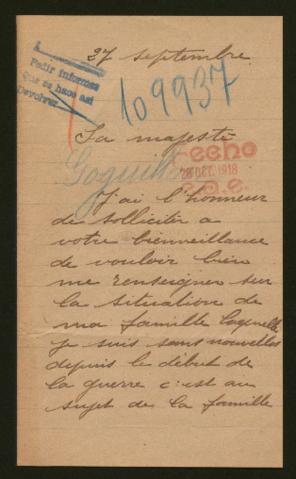 27 septembre
Pedir informes
que se hace asi
Devolver
109937
Sa majesté
Hecho
28 OCT. 1918
J'ai l'honneur
de solliciter a
votre bienveillance
de vouloir bien
me renseigner sur
la situation de
ma famille laquelle
je suis sans nouvelles
depuis le début de
la guerre c'est au
sujet de la famille